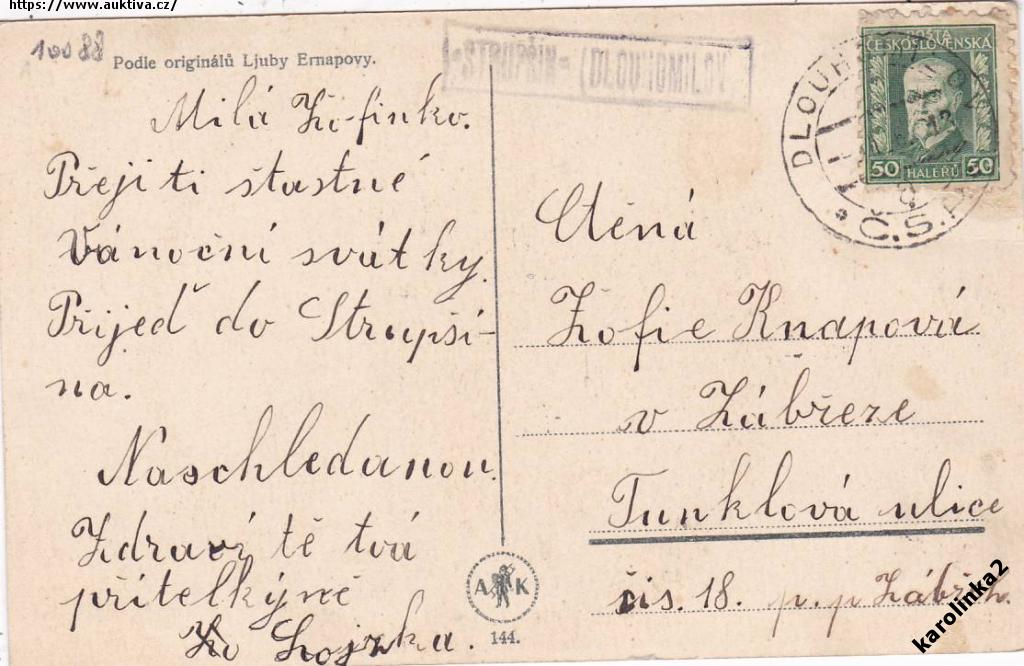 https://www.auktiva.cz/
10088
Podle originálů Ljuby Ernapovy.
STRUPŠÍN (DLOUHOMILOV
ČESKOSLOVENSKÁ
50 HALÉŘŮ 50
DLOUH
Č.S.P.
Milá Žofinko.
Přeji ti šťastné
Vánoční svátky.
Přijeď do Strupší-
na.
Naschledanou.
Zdraví tě tvá
přítelkyně
Lojzka.
Ctěná
Žofie Knapová
v Zábřeze
Tunklová ulice
čis. 18. p. p. Zábřeh.
A K
144.
karolinka2